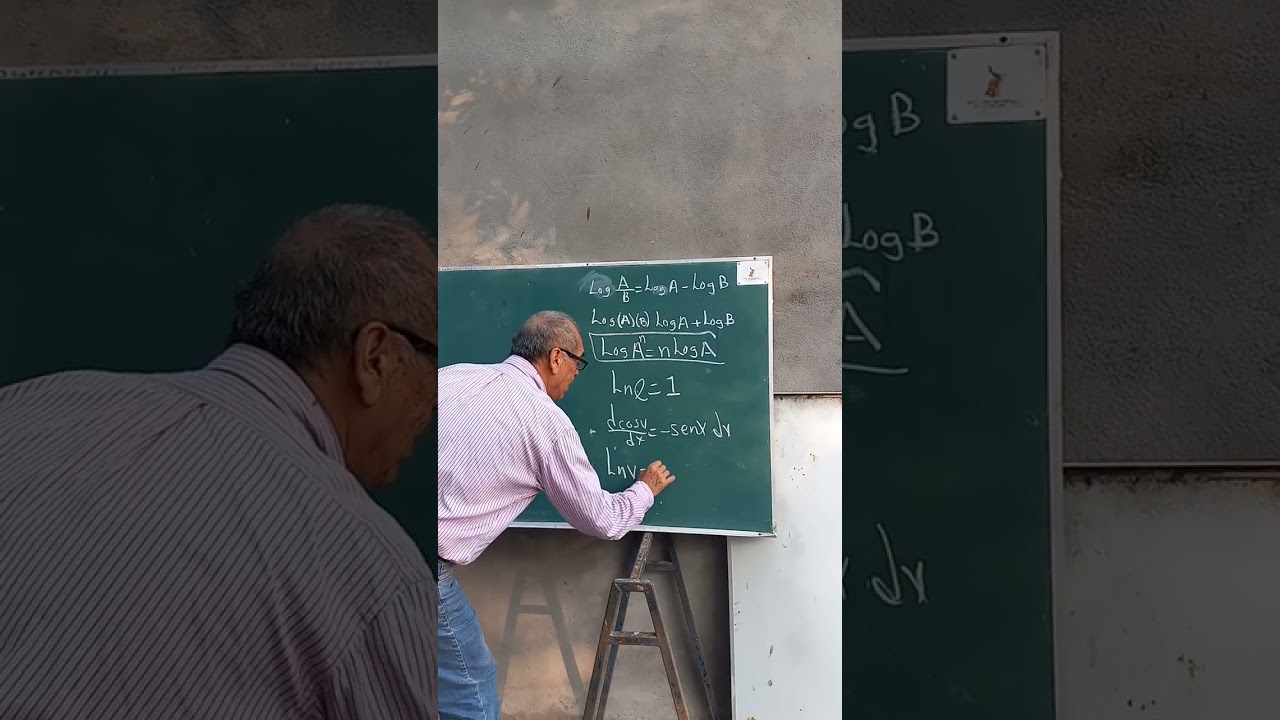 Log A/B = LogA - LogB
Log(A)(B) LogA + LogB
LogAⁿ = nLogA
Lne = 1
dcosv/dx = -senx dx
Lnv=